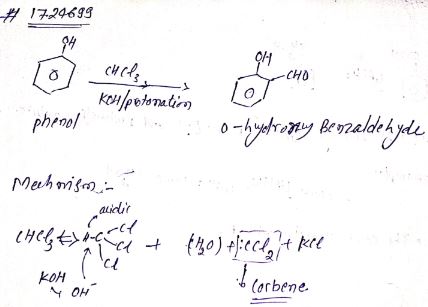 # 1724699
OH
OH
CHCl3
CHO
KOH/protonation
phenol
O-hydroxy Benzaldehyde
Mechanism:-
acidic
CHCl3 ⇔ H-C Cl Cl Cl + (H2O) + [:CCl2] + KCl
KOH
OH-
Carbene